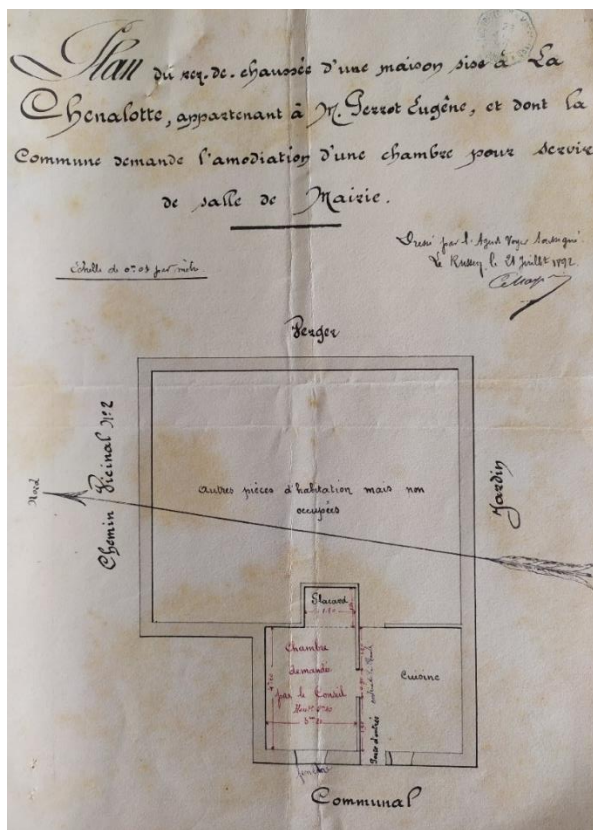 Plan du rez-de-chaussée d'une maison sise à La
Chenalotte, appartenant à M. Perrot Eugêne, et dont la
Commune demande l'amodiation d'une chambre pour servir
de salle de Mairie.
Dressé par l'Agent Voyer soussigné
Le Russey, le 21 Juillet 1892
Échelle de 0m01 par mètre
Verger
Chemin Vicinal Nº2
Nord
Jardin
autres pièces d'habitation mais non
occupées
Placard
Chambre
demandée
par le Conseil
Cuisine
Porte d'entrée
fenêtre
Communal